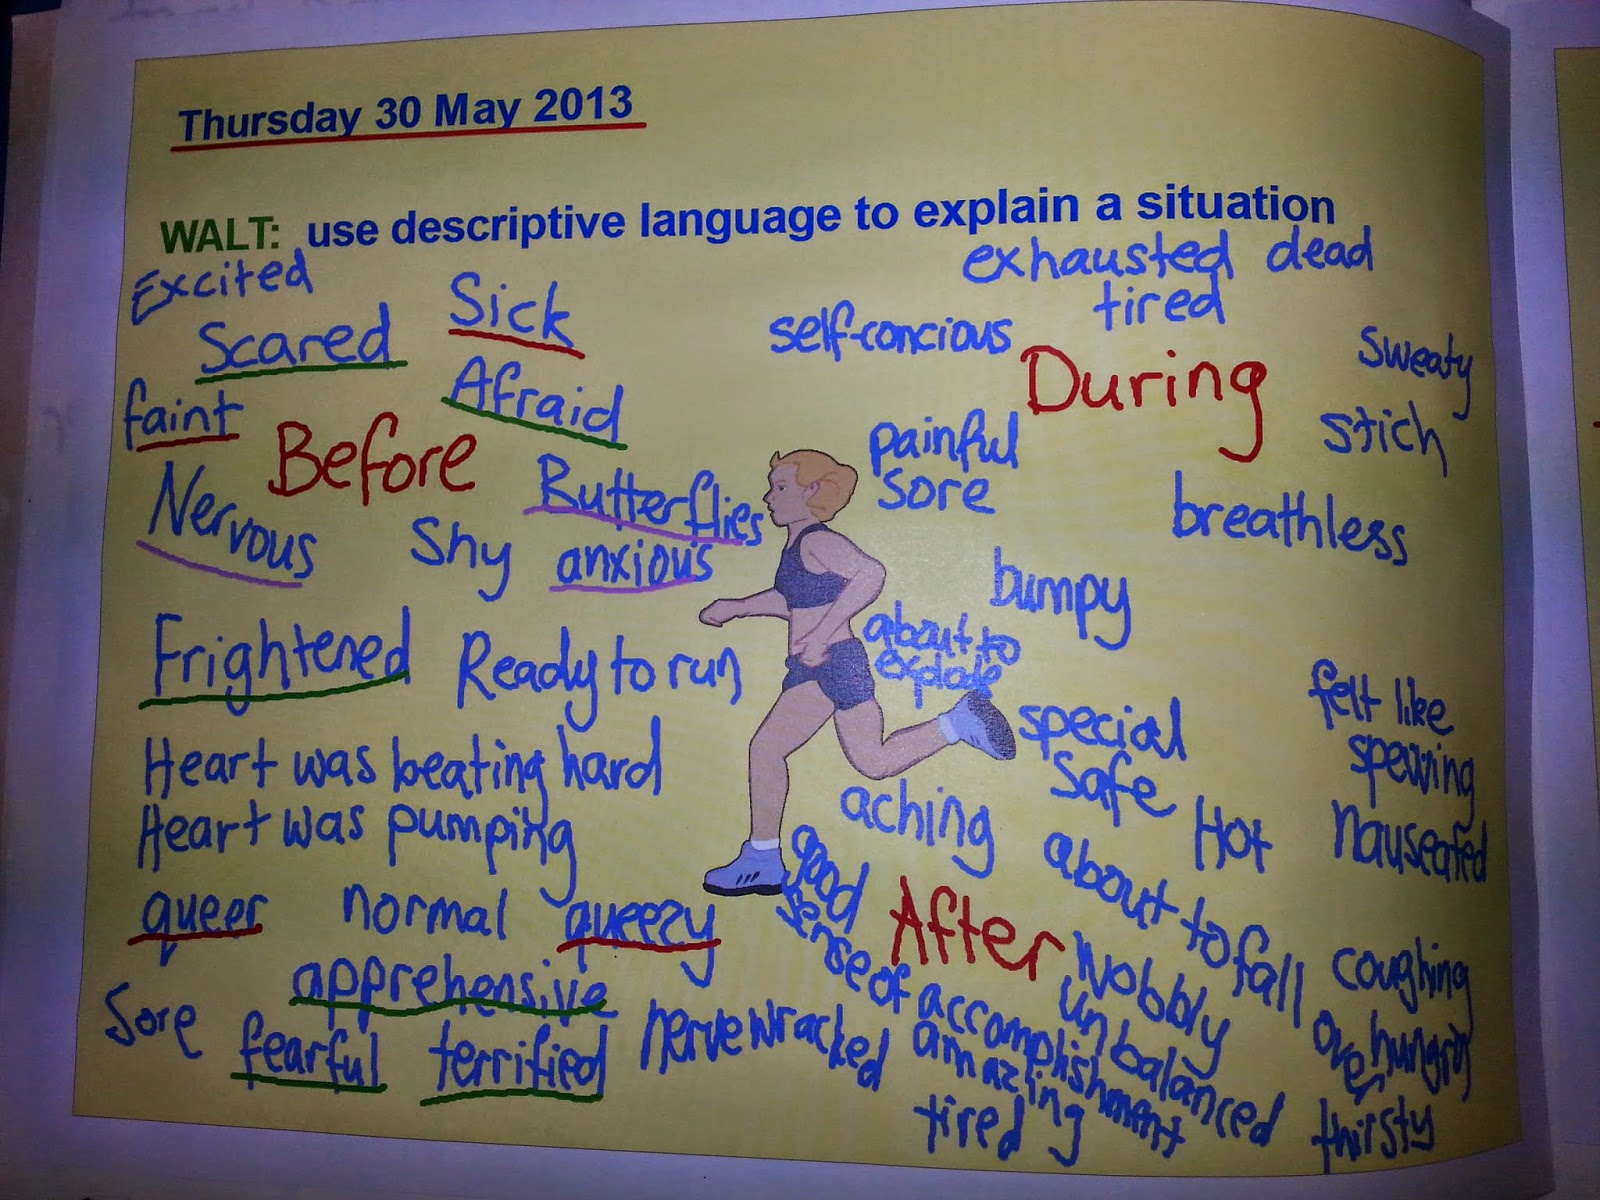 Thursday 30 May 2013
WALT: use descriptive language to explain a situation
Excited
Sick
Scared
Afraid
faint
Before
Butterflies
Nervous
Shy
anxious
Frightened
Ready to run
Heart was beating hard
Heart was pumping
queer
normal
queezy
apprehensive
Sore
fearful
terrified
nervewracked
exhausted
dead
tired
self-concious
During
sweaty
stich
painful
sore
breathless
bumpy
about to
explode
special
safe
felt like
spewing
aching
Hot
nauseated
good
sense of accomplishment
After
about to fall
wobbly
unbalanced
coughing
amazing
tired
over
hungry
thirsty